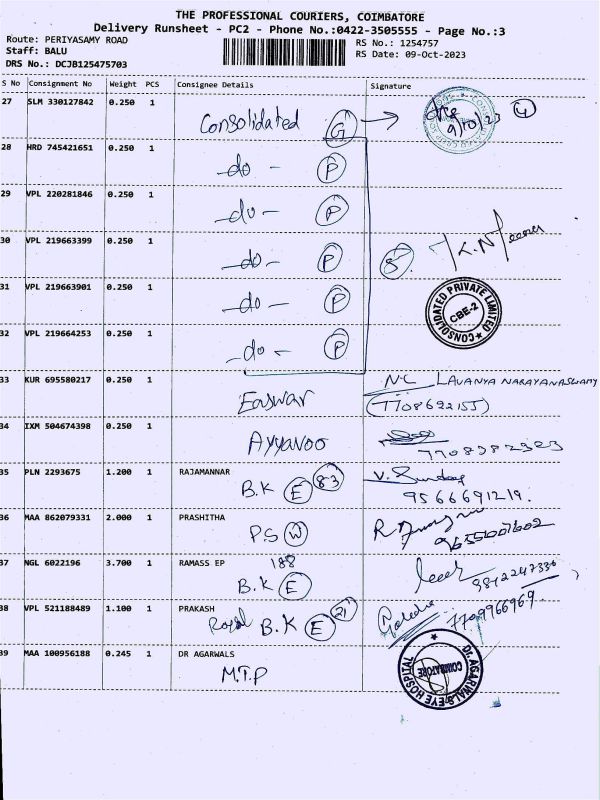 THE PROFESSIONAL COURIERS, COIMBATORE
Delivery Runsheet - PC2 - Phone No.:0422-3505555 - Page No.:3
Route: PERIYASAMY ROAD
RS No.: 1254757
Staff: BALU
RS Date: 09-Oct-2023
DRS No.: DCJB125475703
S No Consignment No Weight PCS Consignee Details Signature
27 SLM 330127842 0.250 1 Consolidated G 9/10/23 4
28 HRD 745421651 0.250 1 -do- P
29 VPL 220281846 0.250 1 -do- P
30 VPL 219663399 0.250 1 -do- P 5
31 VPL 219663901 0.250 1 -do- P
CONSOLIDATED PRIVATE LIMITED
CBE-2
32 VPL 219664253 0.250 1 -do- P
33 KUR 695580217 0.250 1 Easwar LAVANYA NARAYANASWAMY
(7708692155)
34 IXM 504674398 0.250 1 Ayyavoo
35 PLN 2293675 1.200 1 RAJAMANNAR
B.K E 83 9566691219.
36 MAA 862079331 2.000 1 PRASHITHA
P.S W
37 NGL 6022196 3.700 1 RAMASS EP 188
B.K E
38 VPL 521188489 1.100 1 PRAKASH
Royal B.K E 21 7709966969.
39 MAA 100956188 0.245 1 DR AGARWALS
M.T.P
Dr. AGARWAL'S EYE HOSPITAL
COIMBATORE